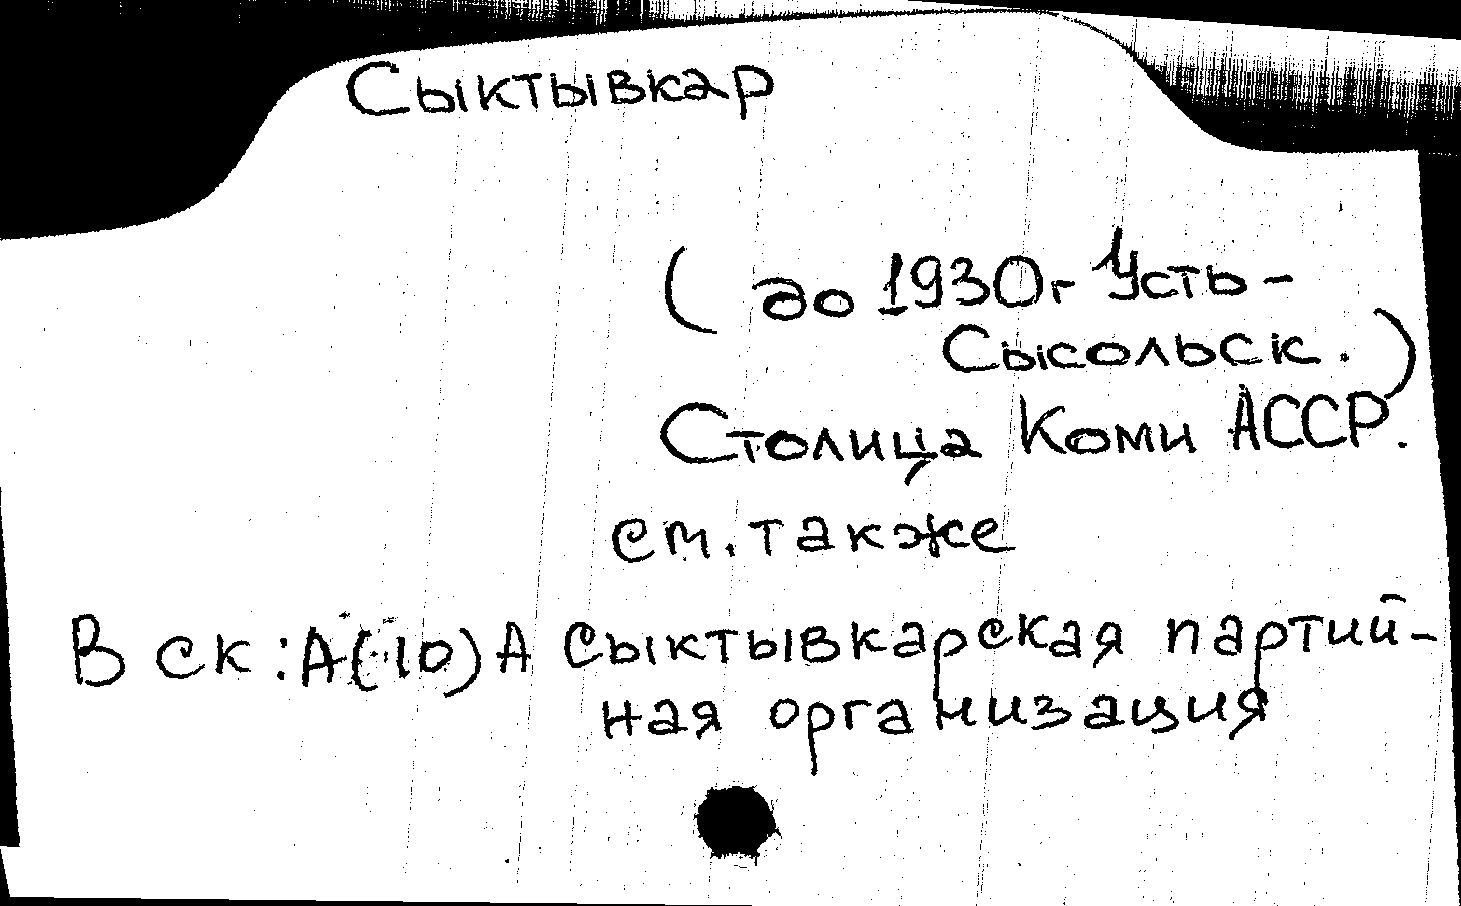 Сыктывкар
(до 1930г Усть-
Сысольск.)
Столица Коми АССР.
см. также
В ск: А(10)А Сыктывкарская партий-
ная организация